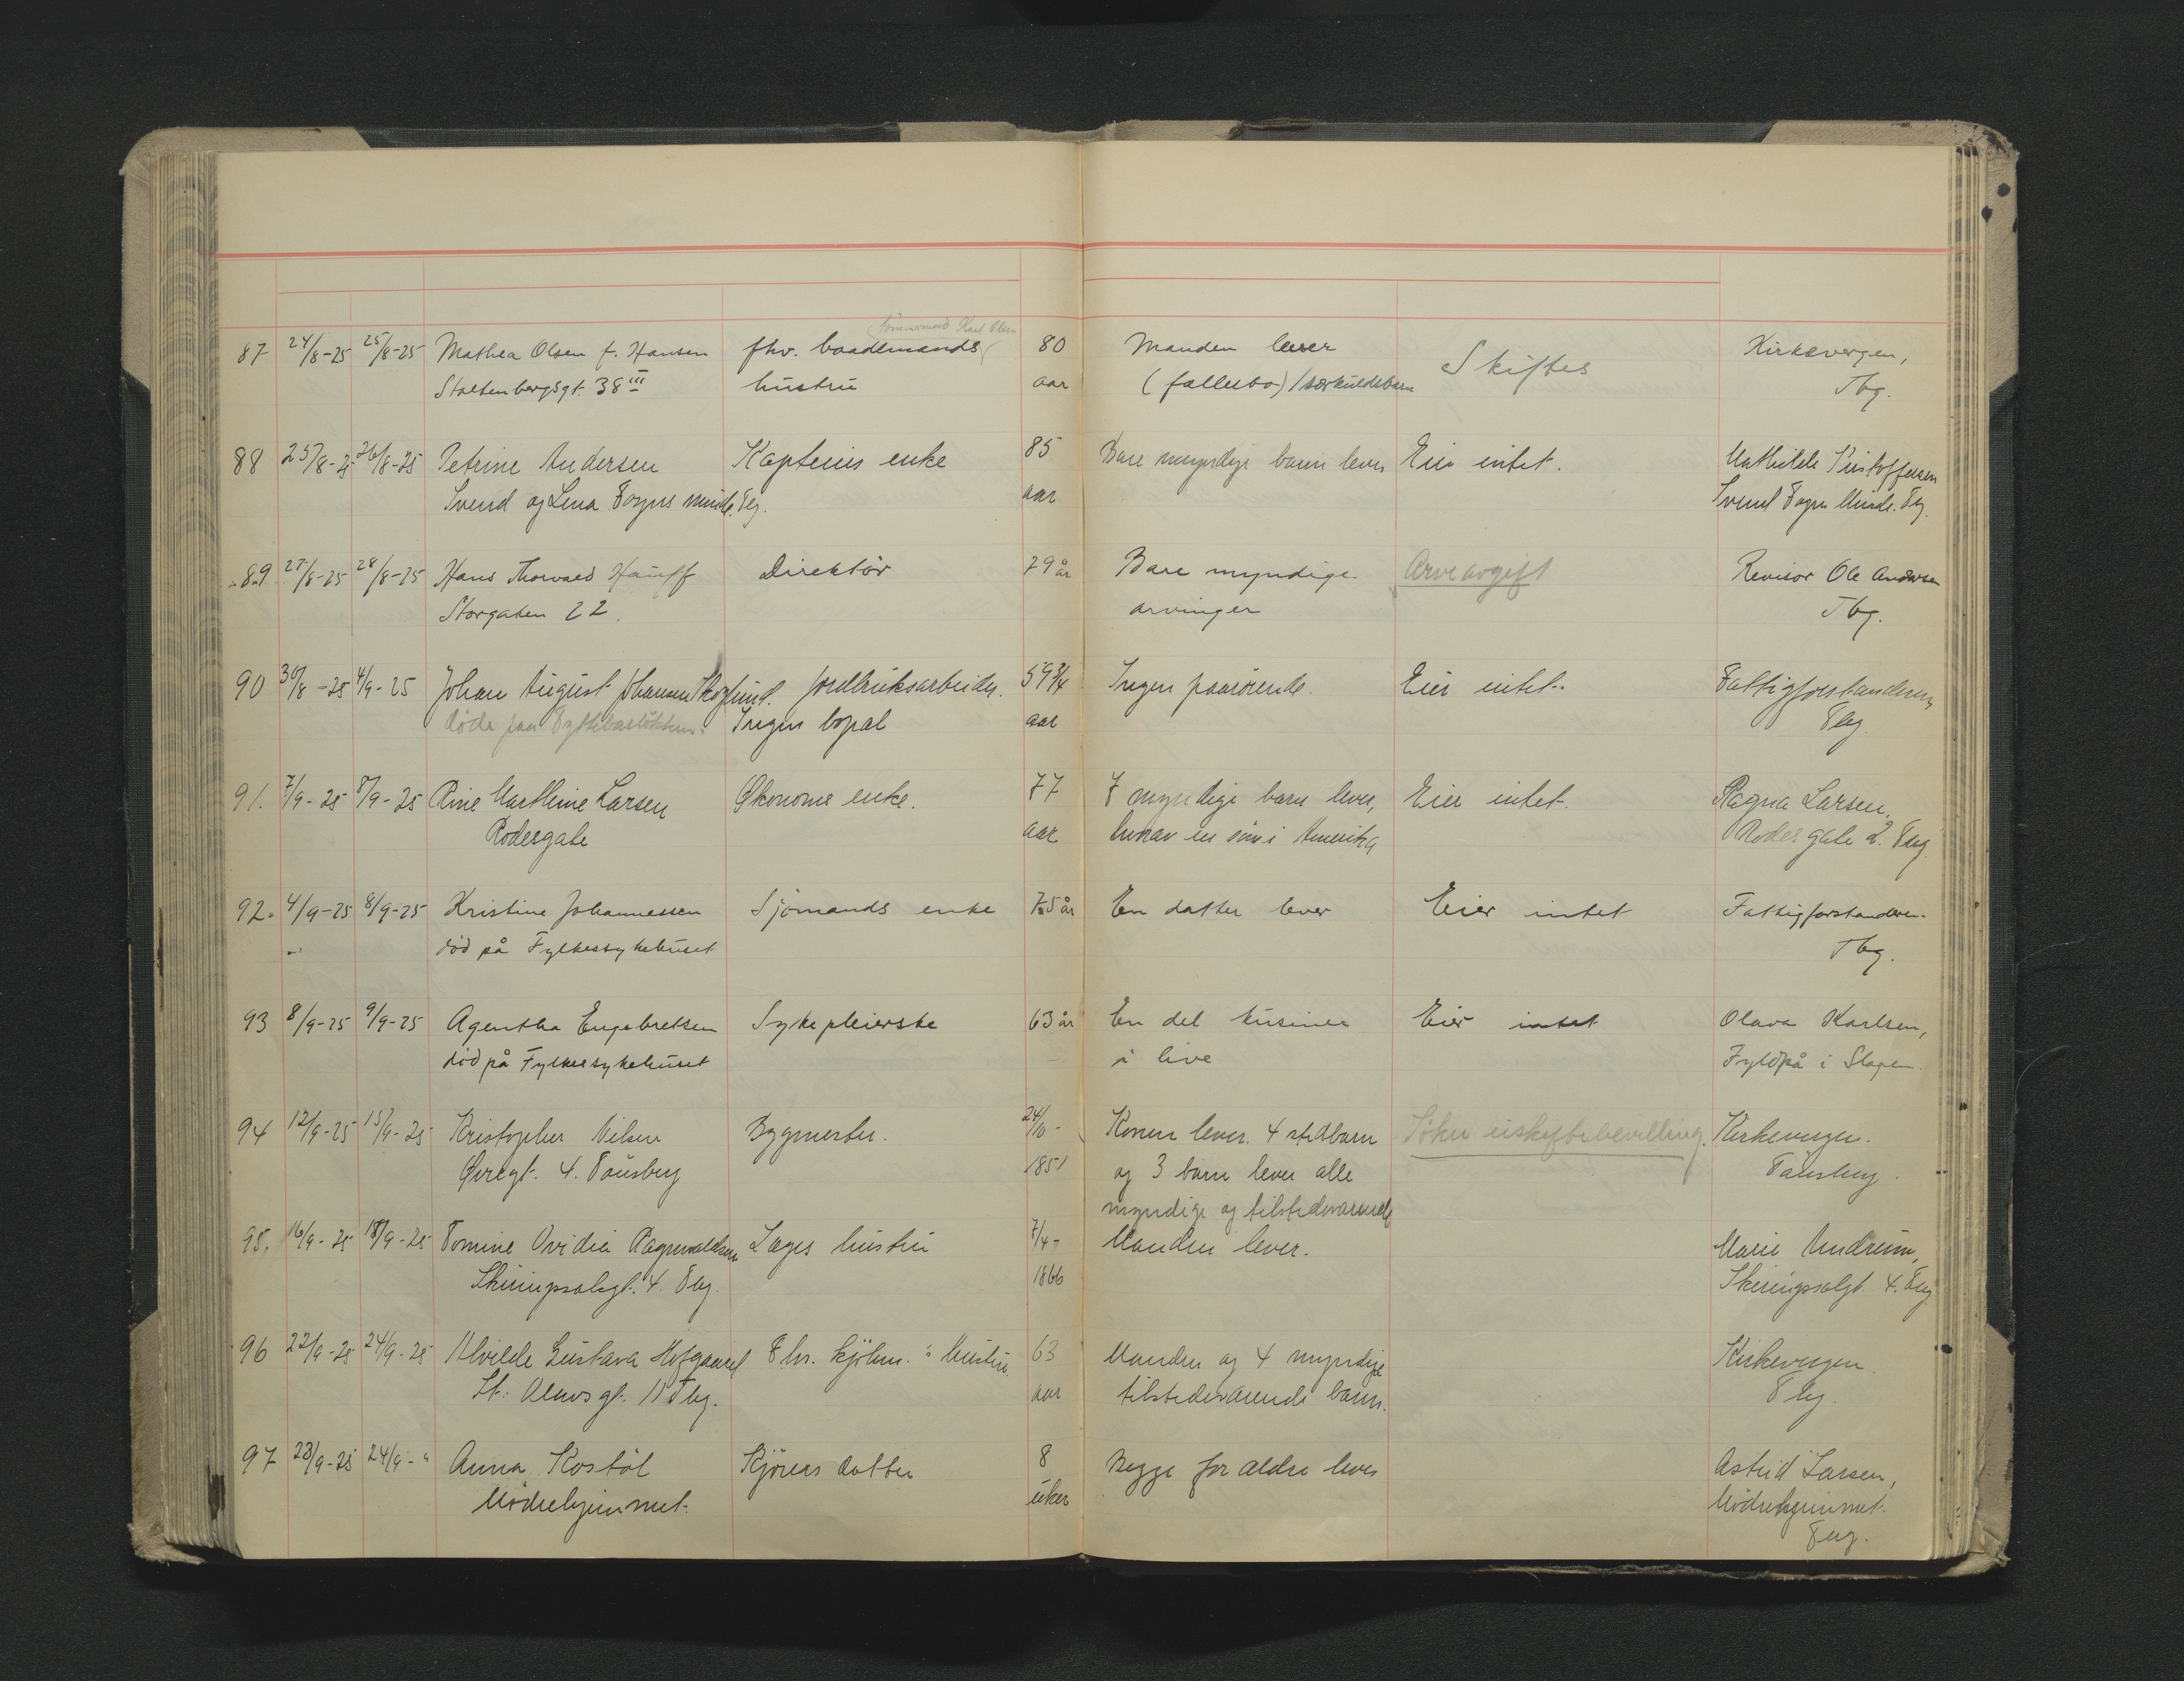 87 24/8-25 25/8-25 Mathea Olsen f. Hansen fhv. baadsmands Tömmermand Karl Olsen 80 Manden lever Skiftes Kirkevergen,
Stoltenbergsgt. 38 III hustru aar (fællesbo) / særkuldsbarn Tbg.
88 25/8-25 26/8-25 Petrine Andersen Kapteins enke 85 Bare myndige barn lever Eier intet. Mathilde Kristoffersen
Svend og Lena Foyns minde. Tbg. aar Svend Foyns Minde. Tbg.
89 27/8-25 28/8-25 Hans Thorvald Hauff Direktör 79 år Bare myndige Arveavgift Revisor Ole Andersen
Storgaten 22. arvinger Tbg.
90 30/8-25 4/9-25 Johan August Johansen Skoglund. jordbruksarbeider. 59 3/4 Ingen paarörende. Eier intet.. Fattigforstanderen,
döde paa Ingen bopæl aar Tbg.
91. 7/9-25 8/9-25 Rine Marthine Larsen Økonoms enke. 77 7 myndige barn lever, Eier intet. Ragna Larsen,
Rodesgate aar hvorav en sön i Amerika Rodesgate 2. Tbg.
92. 4/9-25 8/9-25 Kristine Johannessen Sjömands enke 75 år En datter lever Eier intet Fattigforstanderen.
död på Fylkessykehuset Tbg.
93 8/9-25 9/9-25 Agentha Engebretsen Sykepleierske 63 år En del kusiner Eier intet Olava Karlsen,
död på Fylkessykehuset i live Fyldpå i Slagen.
94 12/9-25 15/9-25 Kristopher Nilsen Bygmester. 24/10- Konen lever. 4 stedbarn Söker uskiftebevilling. Kirkevergen.
Øvregt. 4. Tönsberg 1851 og 3 barn lever alle Tönsberg.
myndige og tilstedeværende
95. 16/9-25 18/9-25 Tomine Ovidia Ragnvaldsen Læges hustru 7/4- Manden lever. Marie Undrum,
Skiringssalsgt. 4. Tbg. 1866 Skiringssalsgt. 4. Tbg.
96 22/9-25 24/9-25 Alvilde Gustava Hofgaard Fhv. kjöbm.s hustru. 63 Manden og 4 myndige Kirkevergen
St. Olavsgt. 11 Tbg. aar tilstedeværende barn. Tbg.
97 23/9-25 24/9-" Anna Kostöl Kjörers datter 8 Begge forældre lever Astrid Larsen,
Mödrehjemmet. uker Mödrehjemmet.
Tbg.